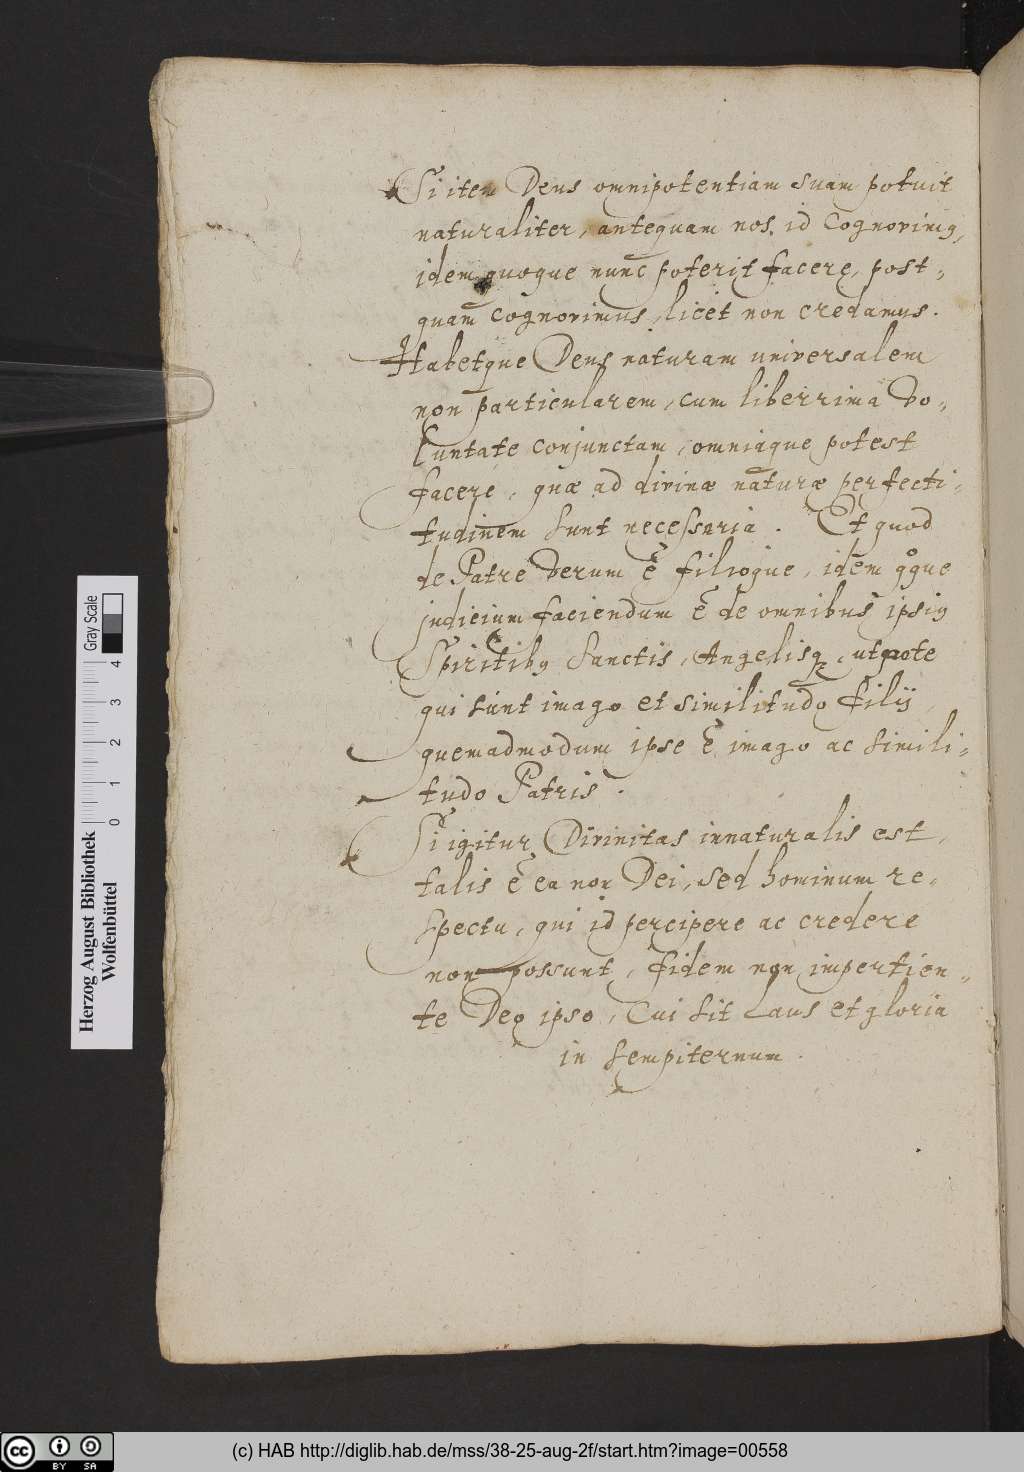 Si item Deus omnipotentiam suam potuit
naturaliter, antequam nos id cognovim9,
idem quoque nunc poterit facere, post-
quam cognovimus, licet non credamus.
Habetque Deus naturam universalem
non particularem, cum liberrima vo-
luntate conjunctam, omniaque potest
facere, quæ ad divinæ naturæ perfecti-
tudinem sunt necessaria. Et quod
de Patre verum ē filioque, idem qoque
judicium faciendum ē de omnibus ipsi9
Spiritib9 Sanctis, Angelisq, utpote
qui sunt imago et similitudo filij,
quemadmodum ipse ē imago ac simili-
tudo Patris.
Si igitur Divinitas innaturalis est,
talis ē ea non Dei, sed hominum re-
spectu, qui id percipere ac credere
non possunt, fidem non impertien-
te Deo ipso, Cui sit Laus et gloria
in sempiternum.
Herzog August Bibliothek
Wolfenbüttel
Gray Scale
0 1 2 3 4
cc BY SA
(c) HAB http://diglib.hab.de/mss/38-25-aug-2f/start.htm?image=00558